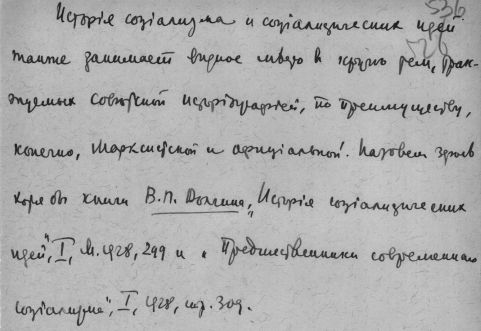 536
526
Исторія соціализма и соціалистических идей
также занимает видное место в кругу тем, трак-
туемых советской исторіографіей, по преимуществу,
конечно, марксистской и официальной. Назовем здесь
хотя бы книги В.П. Волгина, "Исторія соціалистических
идей", I, М. 1928, 299 и "Предшественники современного
соціализма", I, 1928, стр. 309.